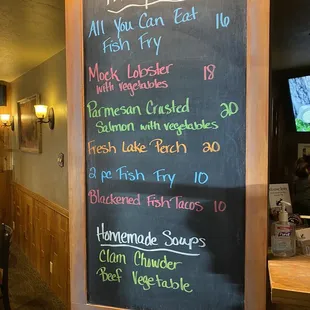 All You Can Eat 16
Fish Fry
Mock Lobster 18
with vegetables
Parmesan Crusted 20
Salmon with vegetables
Fresh Lake Perch 20
2 pc Fish Fry 10
Blackened Fish Tacos 10
Homemade Soups
Clam Chowder
Beef Vegetable